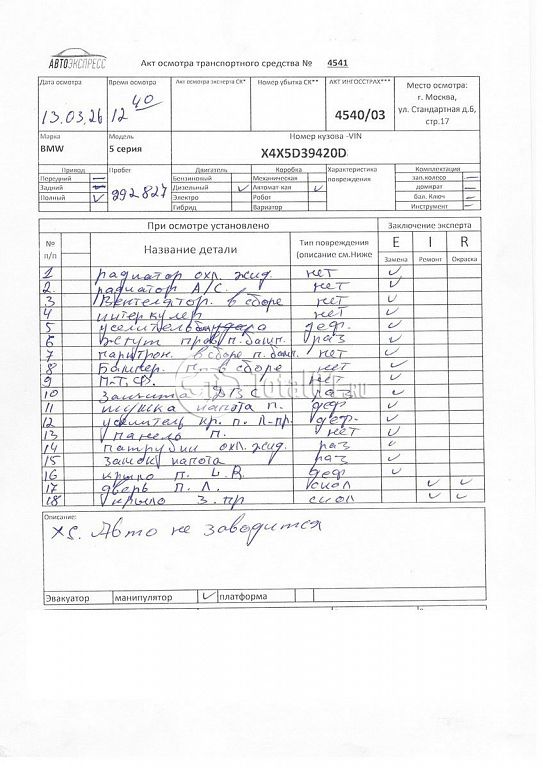 АВТОЭКСПРЕСС
Акт осмотра транспортного средства № 4541
Дата осмотра
Время осмотра
Акт осмотра эксперта СК*
Номер убытка СК**
АКТ ИНГОССТРАХ***
Место осмотра:
г. Москва,
ул. Стандартная д.6,
стр.17
13.03.26
12 40
4540/03
Марка
Модель
Номер кузова -VIN
BMW
5 серия
X4X5D39420D
Привод
Пробег
Двигатель
Коробка
Характеристика
повреждения
Комплектация
Передний —
Бензиновый
Механическая
зап.колесо —
Задний —
292827
Дизельный ✓
Автомат-кая ✓
домкрат —
Полный ✓
Электро
Робот
бал. Ключ —
Гибрид
Вариатор
Инструмент —
При осмотре установлено
Заключение эксперта
№
п/п
Название детали
Тип повреждения
(описание см.Ниже
E I R
Замена Ремонт Окраска
1 радиатор охл. жид. нет ✓
2. радиатор А/С. нет ✓
3 Вентелятор. в сборе нет ✓
4 интеркулер нет ✓
5 уселитель деф. ✓
6 жгут пров. п. бамп. раз ✓
7 в сборе п. бамп. нет ✓
8 Бампер. п. в сборе нет ✓
9 П.Т.Ф. нет ✓
10 Защита ДВС раз ✓
11 капота п. деф ✓
12 усилитель кр. п. Л-пр. деф. ✓
13 панель п. нет ✓
14 патрубки охл. жид. раз ✓
15 замок капота раз ✓
16 крыло п. L.R. деф ✓
17 дверь п. Л. скол ✓ ✓
18 крыло з. пр скол ✓ ✓
Total.RU
Описание:
Авто не заводится
Эвакуатор
манипулятор
✓ платформа